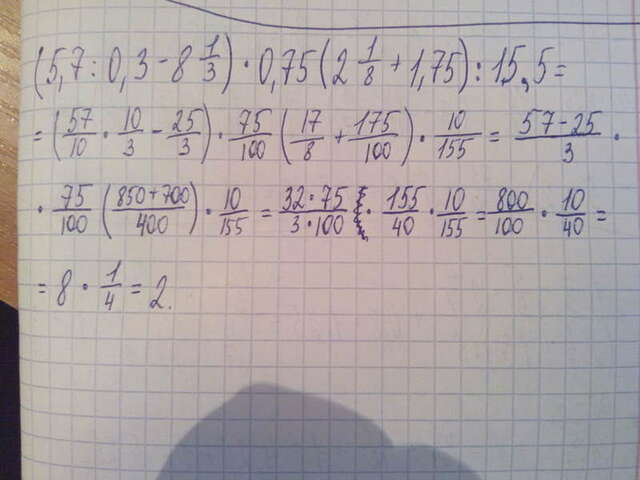 (5,7 : 0,3 - 8 1/3) · 0,75 (2 1/8 + 1,75) : 15,5 =
= (57/10 · 10/3 - 25/3) · 75/100 (17/8 + 175/100) · 10/155 = 57-25/3 ·
· 75/100 (850+700/400) · 10/155 = 32·75/3·100 · 155/40 · 10/155 = 800/100 · 10/40 =
= 8 · 1/4 = 2.